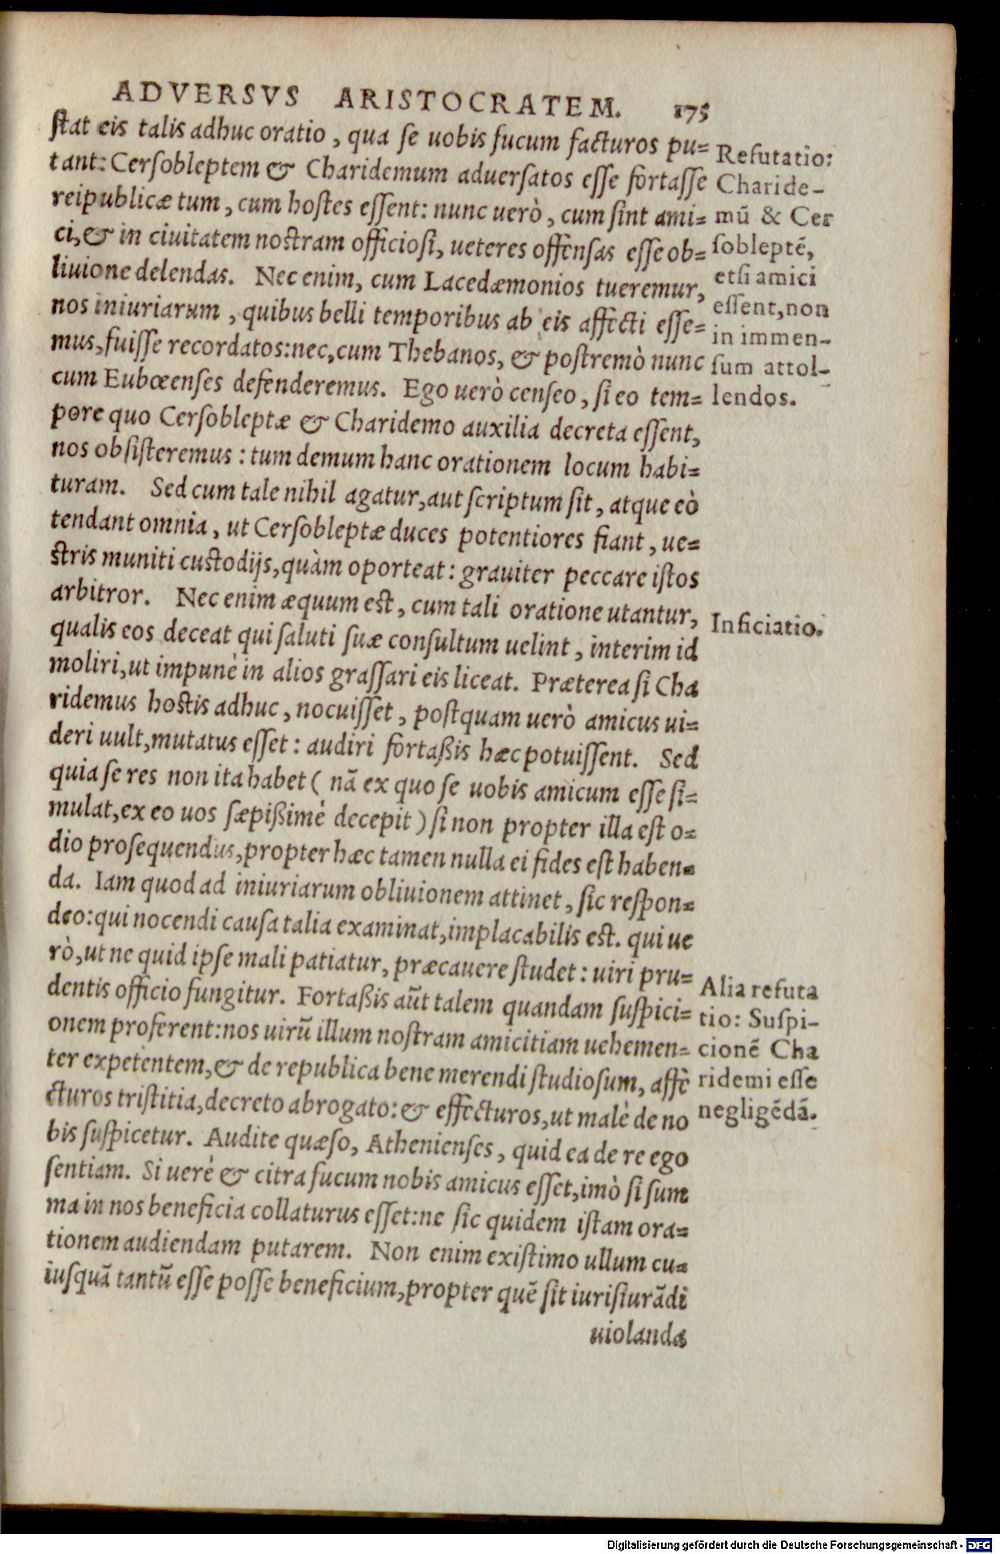 ADVERSVS ARISTOCRATEM. 175
ſtat eis talis adhuc oratio, qua ſe uobis fucum facturos pu=
tant: Cerſobleptem & Charidemum aduerſatos eſſe fortaſſe
reipublicæ tum, cum hoſtes eſſent: nunc uerò, cum ſint ami=
ci, & in ciuitatem noſtram officioſi, ueteres offenſas eſſe ob=
liuione delendas. Nec enim, cum Lacedæmonios tueremur,
nos iniuriarum, quibus belli temporibus ab eis affecti eſſe=
mus, fuiſſe recordatos: nec, cum Thebanos, & poſtremò nunc
cum Eubœenſes defenderemus. Ego uerò cenſeo, ſi eo tem=
pore quo Cerſobleptæ & Charidemo auxilia decreta eſſent,
nos obſiſteremus: tum demum hanc orationem locum habi=
turam. Sed cum tale nihil agatur, aut ſcriptum ſit, atque eò
tendant omnia, ut Cerſobleptæ duces potentiores fiant, ue=
ſtris muniti cuſtodijs, quàm oporteat: grauiter peccare iſtos
arbitror. Nec enim æquum eſt, cum tali oratione utantur,
qualis eos deceat qui ſaluti ſuæ conſultum uelint, interim id
moliri, ut impunè in alios graſſari eis liceat. Præterea ſi Cha
ridemus hoſtis adhuc, nocuiſſet, poſtquam uerò amicus ui=
deri uult, mutatus eſſet: audiri fortaßis hæc potuiſſent. Sed
quia ſe res non ita habet (nã ex quo ſe uobis amicum eſſe ſi=
mulat, ex eo uos ſæpißimè decepit) ſi non propter illa eſt o=
dio proſequendus, propter hæc tamen nulla ei fides eſt haben=
da. Iam quod ad iniuriarum obliuionem attinet, ſic reſpon=
deo: qui nocendi cauſa talia examinat, implacabilis eſt. qui ue
rò, ut ne quid ipſe mali patiatur, præcauere ſtudet: uiri pru=
dentis officio fungitur. Fortaßis aũt talem quandam ſuſpici=
onem proferent: nos uirũ illum noſtram amicitiam uehemen=
ter expetentem, & de republica bene merendi ſtudioſum, affe
cturos triſtitia, decreto abrogato: & effecturos, ut malè de no
bis ſuſpicetur. Audite quæſo, Athenienſes, quid ea de re ego
ſentiam. Si uerè & citra fucum nobis amicus eſſet, imò ſi ſum
ma in nos beneficia collaturus eſſet: ne ſic quidem iſtam ora=
tionem audiendam putarem. Non enim exiſtimo ullum cu=
iuſquã tantũ eſſe poſſe beneficium, propter quẽ ſit iuriſiurãdi
uiolanda
Refutatio:
Charide-
mũ & Cer
ſobleptẽ,
etſi amici
eſſent, non
in immen-
ſum attol-
lendos.
Inficiatio.
Alia refuta
tio: Suſpi-
cionẽ Cha
ridemi eſſe
negligẽdã.
Digitalisierung gefördert durch die Deutsche Forschungsgemeinschaft - DFG